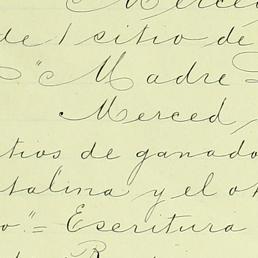 Merced
de 1 sitio de
"Madre
Merced,
tios de ganado
talina y el ot
o." = Escritura